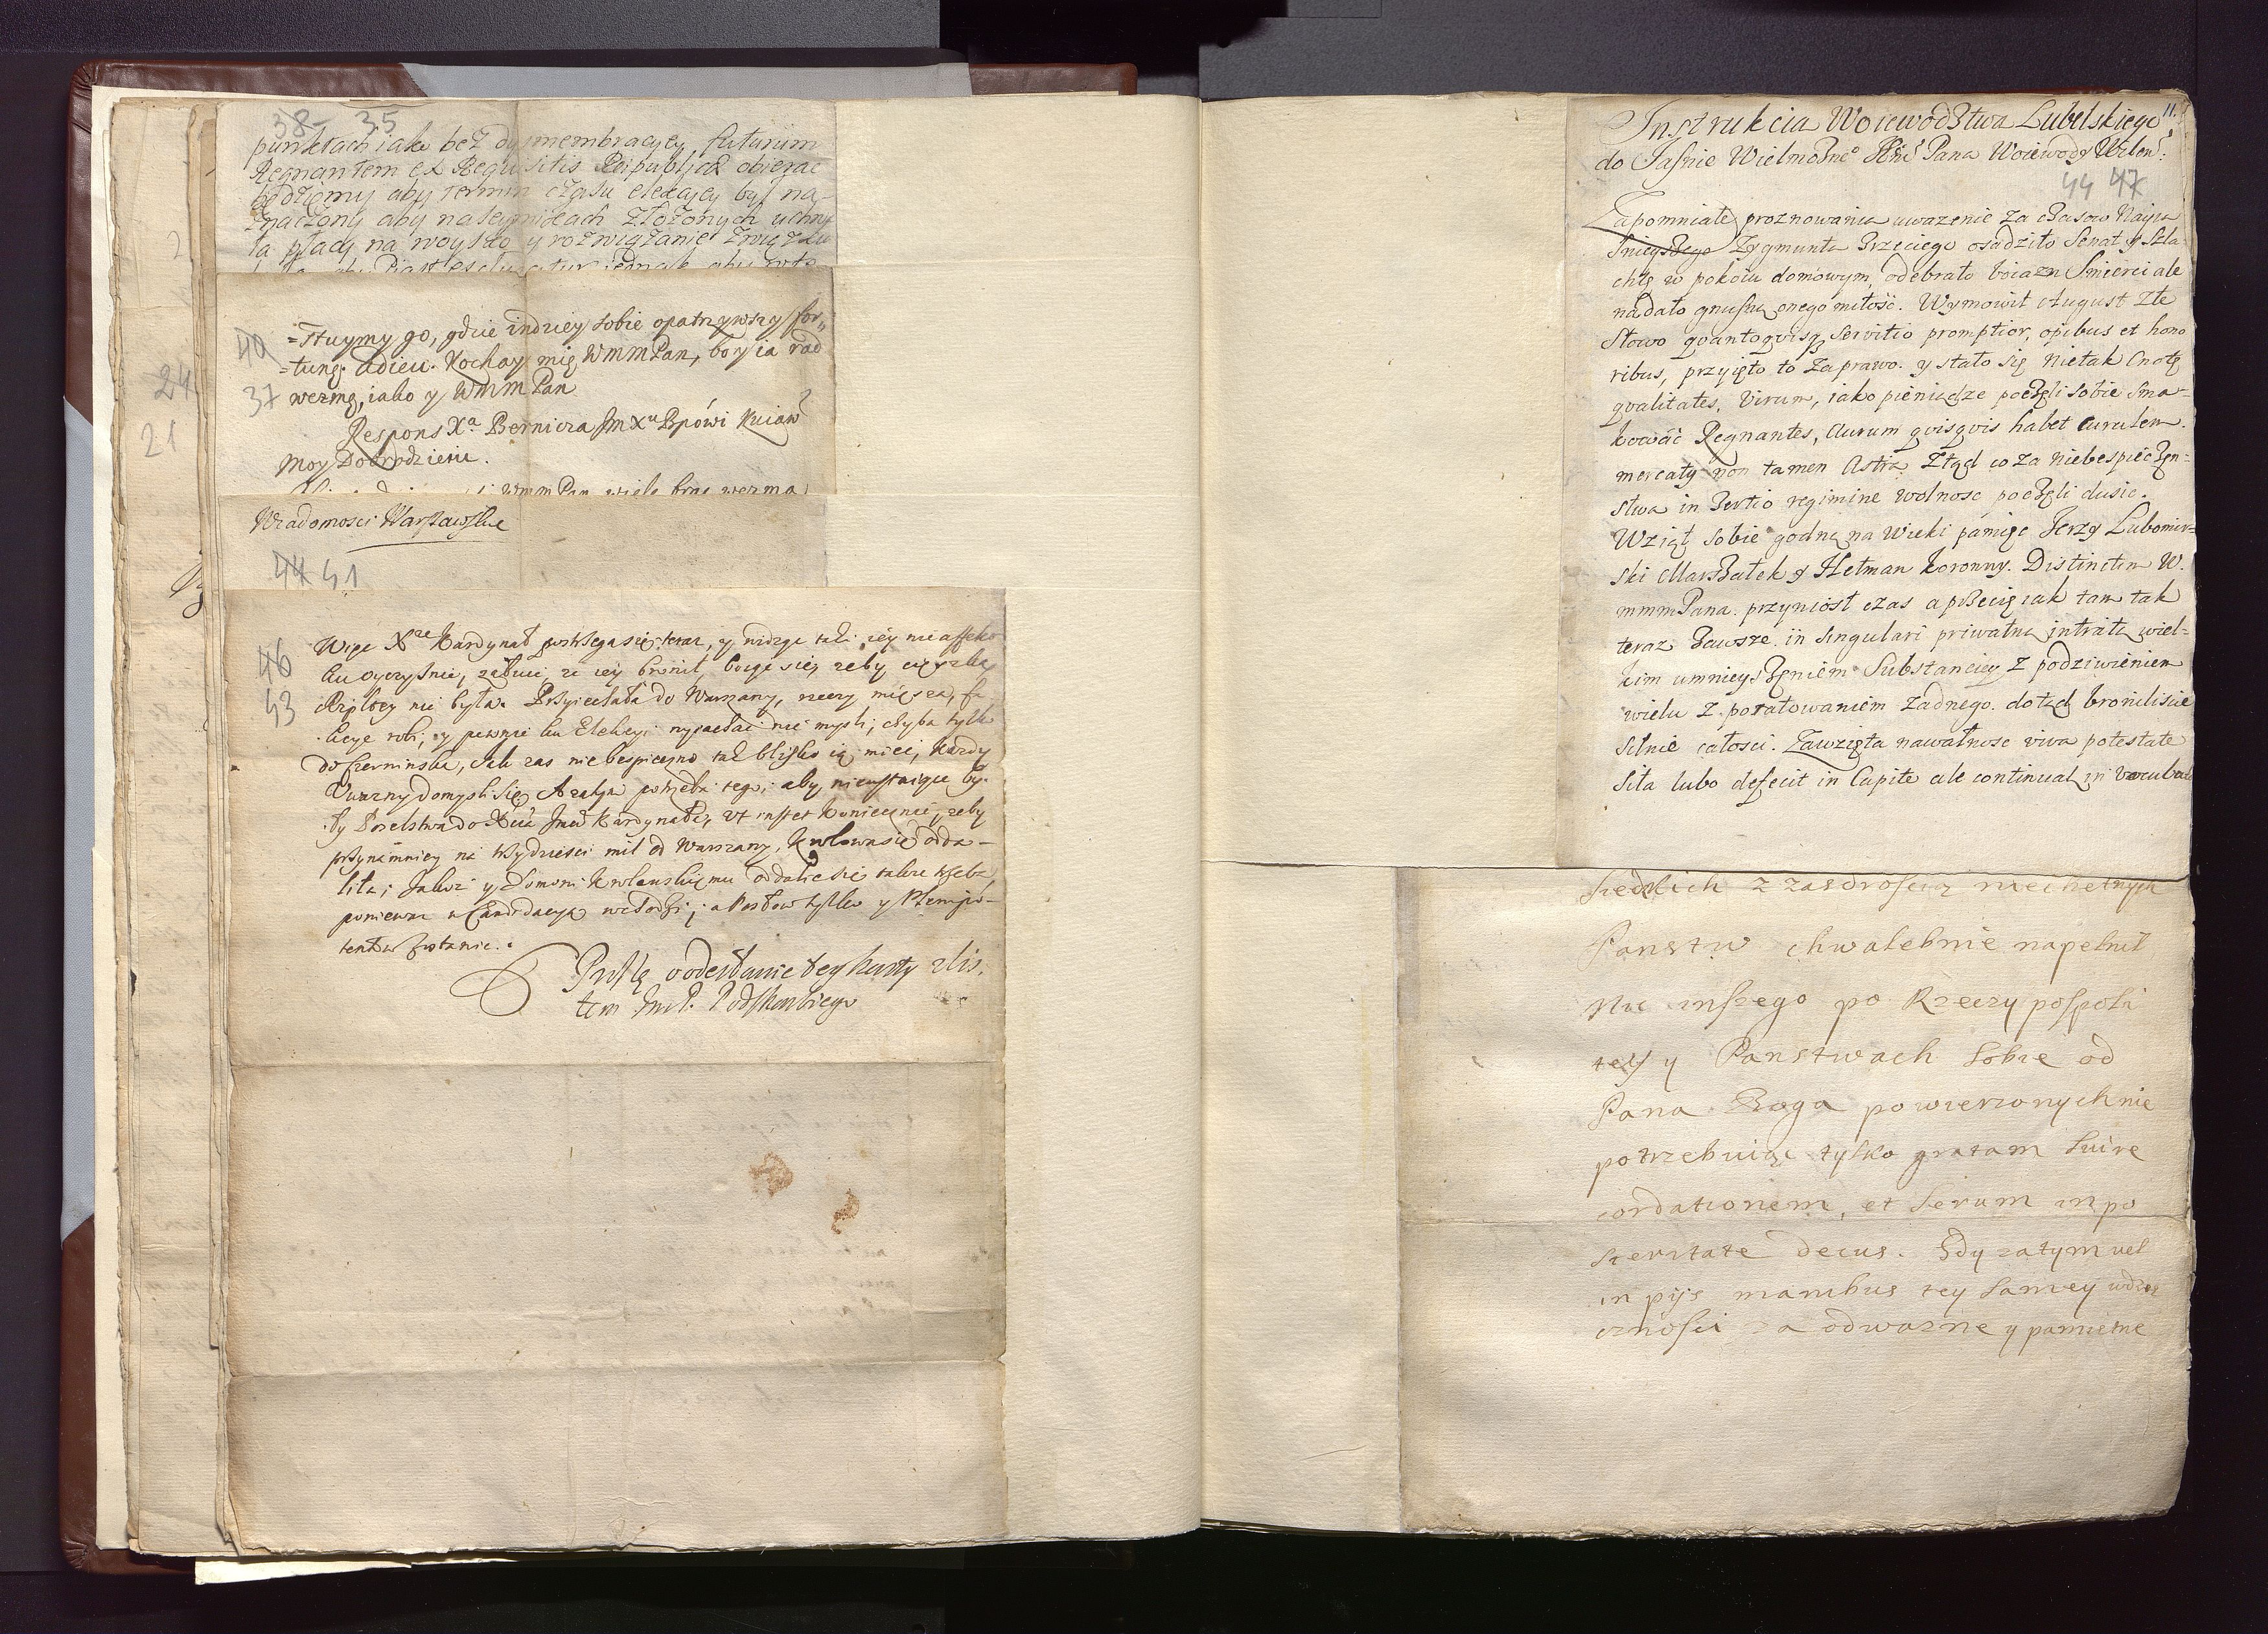 38 35
punktach iako bez dysmembracyey futurum
Regnantem ex Requisitis Reipublicæ obierac
będziemy aby termin czasu elekcyey był na
znaczony aby na seymikach złożonych uchwa
ła płacy na woysko y rozwiązanie związku
=Ttuymy go, gdzie indziey sobie opatrzywszy for
=tunę. Adieu. Kochay mię WMMPan, bo y ia rad
40
37
wezmę, iako y WMMPan
Respons Xa Bernicza Jm Xu Bpowi Kuiaw
Moy Dobrodzieiu.
WMMPan wiele bras wezma
Wiadomosci Warszawskie
44 41
24
21
46
43
Więc Xze Kardynał teraz, y widzę
Oyczysnie, ze iey bronił, boię się, zeby
Rzpltey nie była. Przyiechała do Warszawy, rzeczy miesza, fa
kcye robi, y pewnie ku Elekcyi wyiechać nie mysli, chyba tylko
do Czerninska, Jak zas niebespieczno tak blisko ią mieć, kazdy
Uwazny domysli się. A zatym potrzeba tego, aby nieustaiące by-
ły Poselstwa do Xcia Jmci Kardynała, Ut instet koniecznie, zeby
przynamniey na trzydziesci mil od Warszawy, Krolowa się odda-
liła; Takoz y Domowi Krolewskiemu oddalic się takze trzeba
poniewaz w Candidacyą wchodzi; a Posłow tylko y Plenipo-
tentow zostawic.
Proszę o odesłanie tey karty z lis,
tem JmP. Podskarbiego
11.
Instrukcia Woiewodztwa Lubelskiego
do Jasnie Wielmożne° Pana Woiewody Wilen:
44 47
Zapomniałe proznowania uwazenie za czasow Nayia
snieyszego Zygmunta Trzeciego osadziło Senat y Szla
chtę w pokoiu domowym, odebrało boiazn Smierci ale
nadało gnuśną onego miłość. Wymowił August złe
Słowo quanto quisq; servitio promptior, opibus et hono
ribus, przyięto to za prawo. y stało się nie tak Cnotę
qualitates, Virum, iako pieniądze poczęli sobie sma-
kować Regnantes, Aurum quisquis habet curulem
mercaty non tamen Astra. Ztąd co za niebespieczen-
stwa in Tertio regimine wolnosc poczęli dusic.
Wziął sobie godną na Wieki pamięc Jerzy Lubomir-
ski Marszałek y Hetman Koronny. Distinctim W.
mmmPana. przyniosł czas a przecię iak tam tak
teraz zawsze iŉ singulari priwatną intratą wiel-
kim umnieyszeniem Substanciey z podziwieniem
wielu z poratowaniem zadnego. dotąd broniliscie
silnie całosci. Zawzięta nawałnosc viva potestate
Siła lubo defecit in Capite ale continuat in
siedzkich z zazdroscią niechętnych
Panstw chwalebnie napełnił
Nic inszego po Rzeczypospoli
tey y Panstwach sobie od
Pana Boga powierzonych nie
potrzebuiąc tylko gratam sui re
cordationem, et serum in po
steritate decus. Gdy zatym vel
in pijs manibus tey samey wdzię
cznosci za odwazne y pamietne